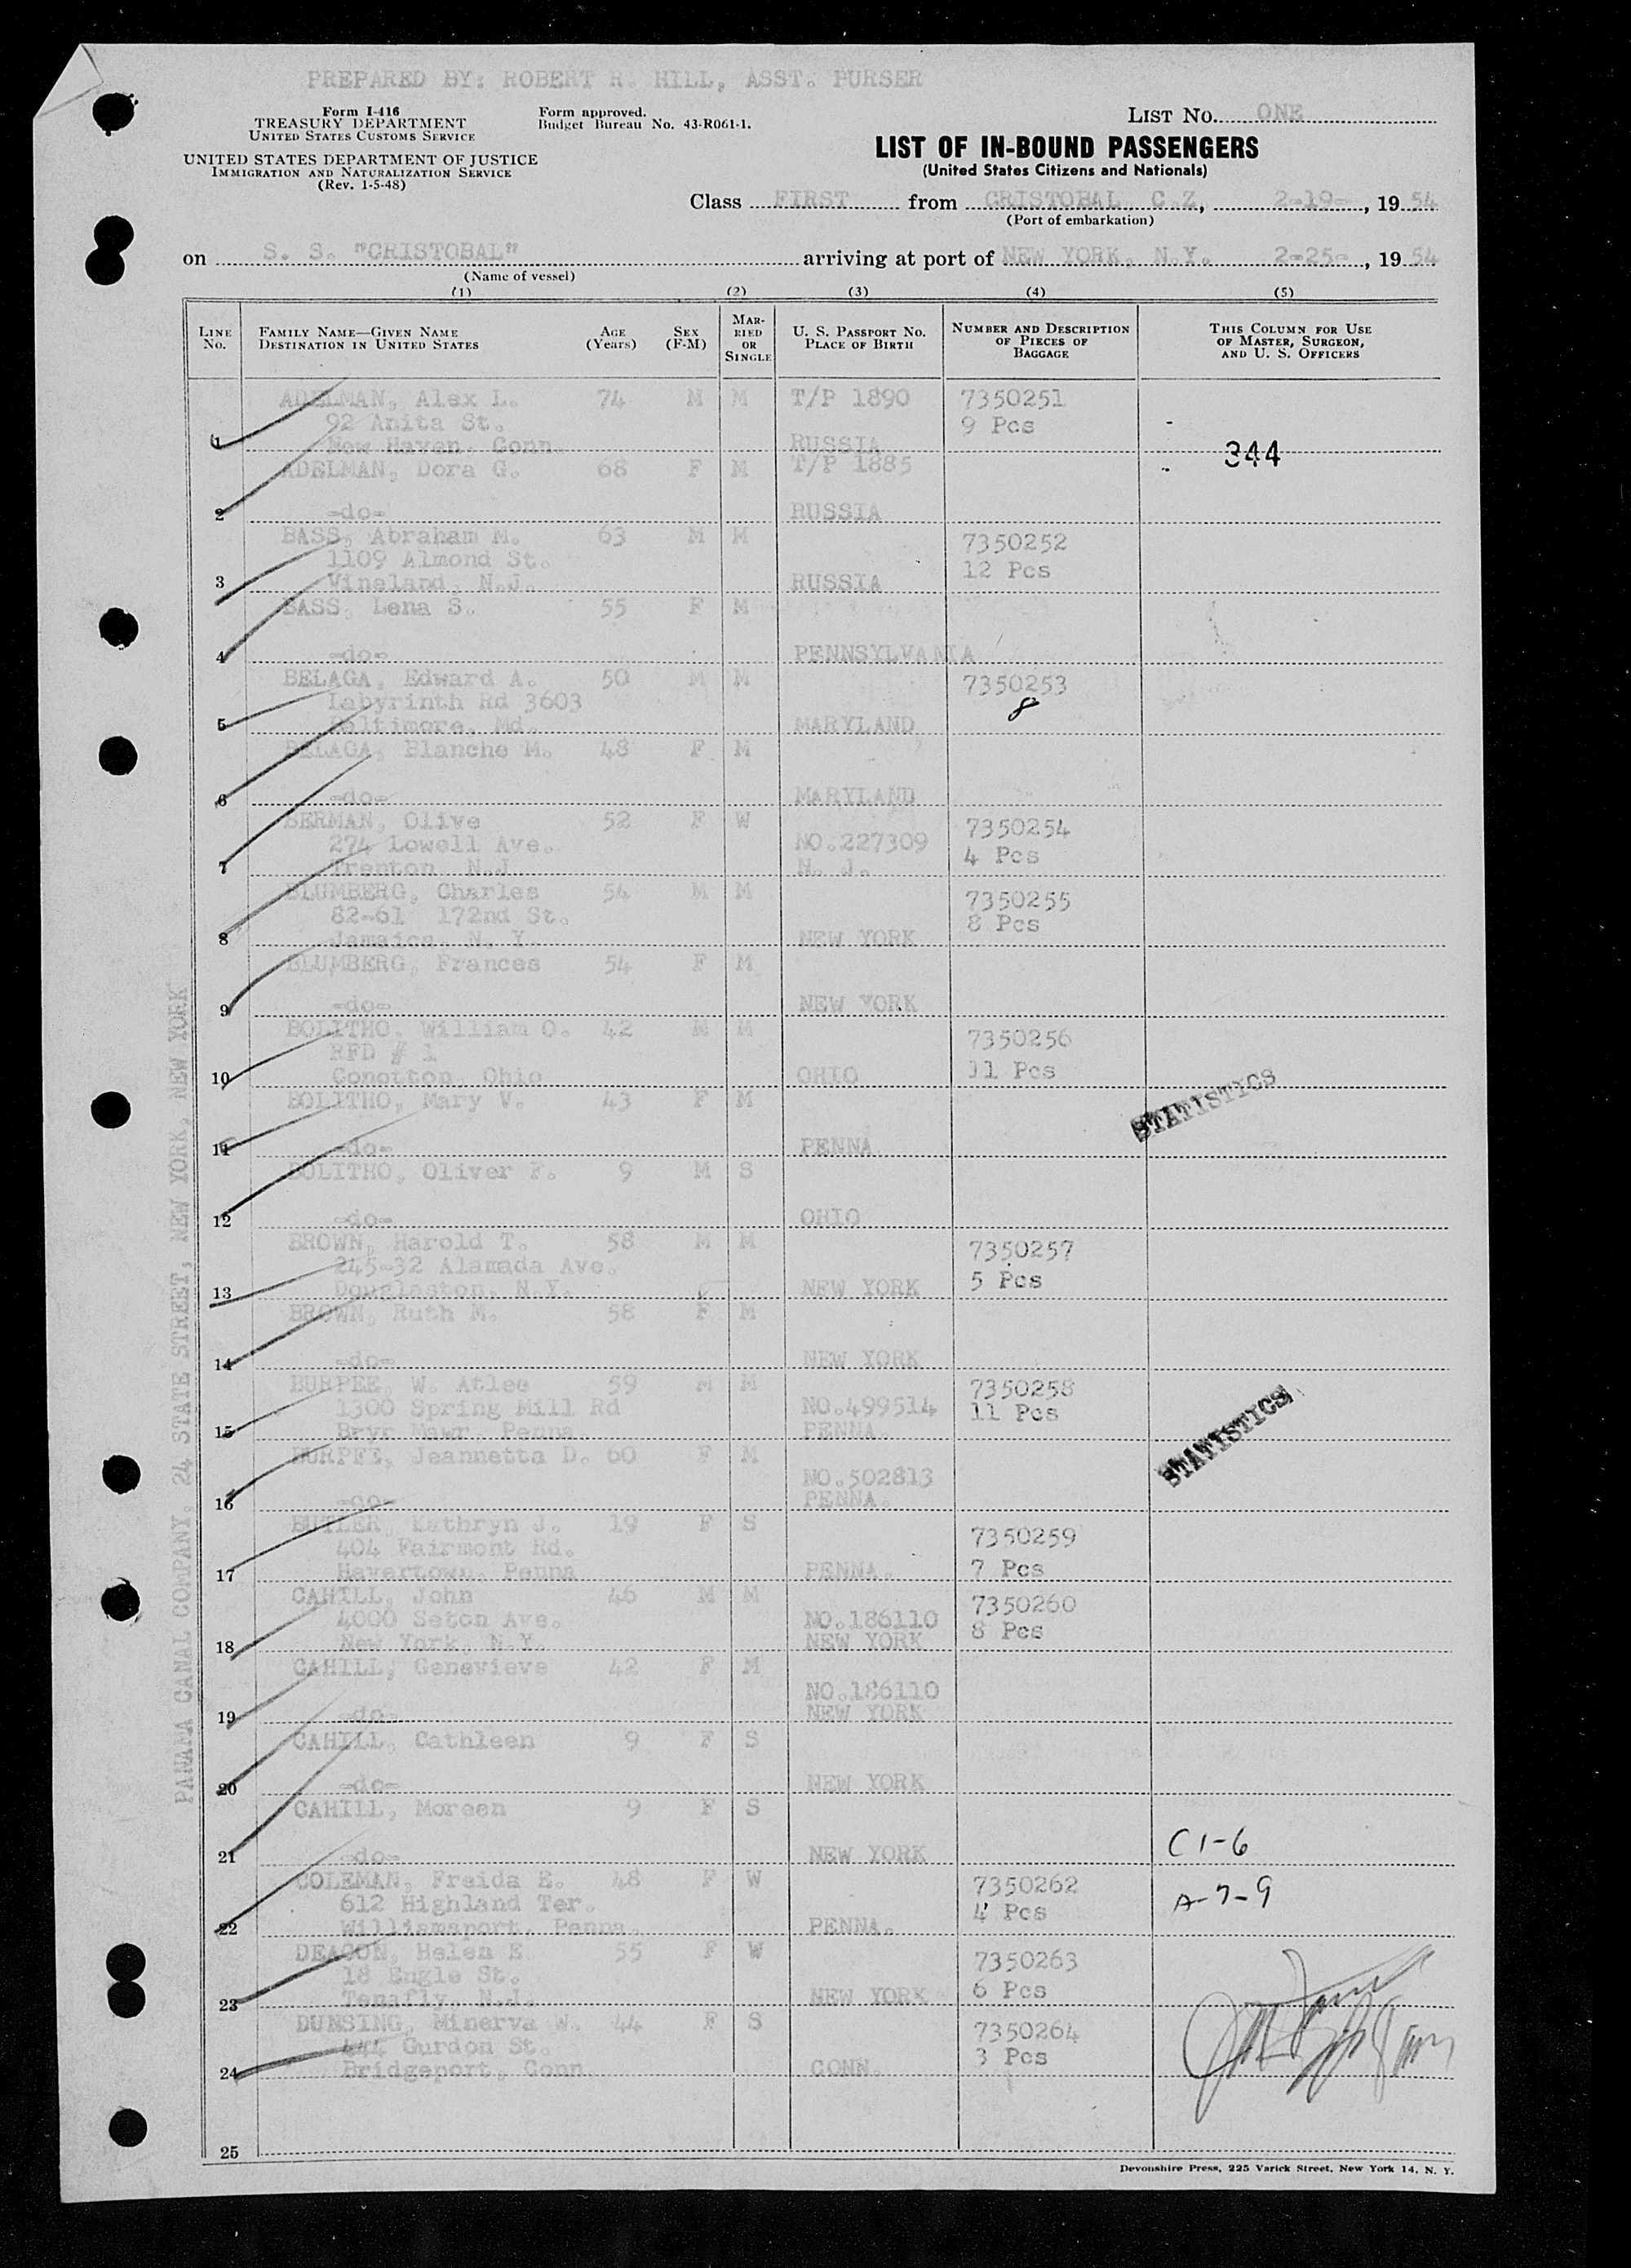 PREPARED BY: ROBERT R. HILL, ASST. PURSER
Form I-416
TREASURY DEPARTMENT
UNITED STATES CUSTOMS SERVICE
Form approved.
Budget Bureau No. 43-R061-1.
LIST NO. ONE
UNITED STATES DEPARTMENT OF JUSTICE
IMMIGRATION AND NATURALIZATION SERVICE
(Rev. 1-5-48)
LIST OF IN-BOUND PASSENGERS
(United States Citizens and Nationals)
Class FIRST from CRISTOBAL, C.Z., 2-19-, 19 54
(Port of embarkation)
on S. S. "CRISTOBAL" arriving at port of NEW YORK, N.Y. 2-25-, 19 54
(Name of vessel)
(1) (2) (3) (4) (5)
LINE NO. FAMILY NAME—GIVEN NAME DESTINATION IN UNITED STATES AGE (Years) SEX (F-M) MARRIED OR SINGLE U. S. PASSPORT NO. PLACE OF BIRTH NUMBER AND DESCRIPTION OF PIECES OF BAGGAGE THIS COLUMN FOR USE OF MASTER, SURGEON, AND U. S. OFFICERS
ADELMAN, Alex L. 74 M M T/P 1890 7350251
92 Anita St. 9 Pcs
1 New Haven, Conn. RUSSIA 344
ADELMAN, Dora G. 68 F M T/P 1885
2 -do- RUSSIA
BASS, Abraham M. 63 M M 7350252
1109 Almond St. 12 Pcs
3 Vineland, N.J. RUSSIA
BASS, Lena S. 55 F M
4 -do- PENNSYLVANIA
BELAGA, Edward A. 50 M M 7350253
Labyrinth Rd 3603 8
5 Baltimore, Md. MARYLAND
BELAGA, Blanche M. 48 F M
6 -do- MARYLAND
BERMAN, Olive 52 F W 7350254
274 Lowell Ave. NO.227309 4 Pcs
7 Trenton, N.J. N. J.
BLUMBERG, Charles 54 M M 7350255
82-61 172nd St. 8 Pcs
8 Jamaica, N. Y. NEW YORK
BLUMBERG, Frances 54 F M
9 -do- NEW YORK
BOLITHO, William O. 42 M M 7350256
RFD # 1 11 Pcs
10 Conotton, Ohio OHIO
BOLITHO, Mary V. 43 F M STATISTICS
11 -do- PENNA.
BOLITHO, Oliver F. 9 M S
12 -do- OHIO
BROWN, Harold T. 58 M M 7350257
245-32 Alamada Ave. 5 Pcs
13 Douglaston, N.Y. NEW YORK
BROWN, Ruth M. 58 F M
14 -do- NEW YORK
BURPEE, W. Atlee 59 M M 7350258
1300 Spring Mill Rd NO.499514 11 Pcs
15 Bryn Mawr, Penna. PENNA.
BURPEE, Jeannetta D. 60 F M STATISTICS
NO.502813
16 -do- PENNA.
BUTLER, Kathryn J. 19 F S 7350259
404 Fairmont Rd.
17 Havertown, Penna PENNA. 7 Pcs
CAHILL, John 46 M M 7350260
4000 Seton Ave. NO.186110 8 Pcs
18 New York, N.Y. NEW YORK
CAHILL, Genevieve 42 F M
NO.186110
19 -do- NEW YORK
CAHILL, Cathleen 9 F S
20 -do- NEW YORK
CAHILL, Moreen 9 F S
21 -do- NEW YORK C1-6
COLEMAN, Freida E. 48 F W 7350262
612 Highland Ter. 4 Pcs A-7-9
22 Williamsport, Penna. PENNA.
DEACON, Helen E. 55 F W 7350263
18 Engle St. 6 Pcs
23 Tenafly, N.J. NEW YORK
DUNSING, Minerva W. 44 F S 7350264
444 Gurdon St. 3 Pcs
24 Bridgeport, Conn. CONN.
25
Devonshire Press, 225 Varick Street, New York 14, N. Y.
PANAMA CANAL COMPANY, 24 STATE STREET, NEW YORK, NEW YORK